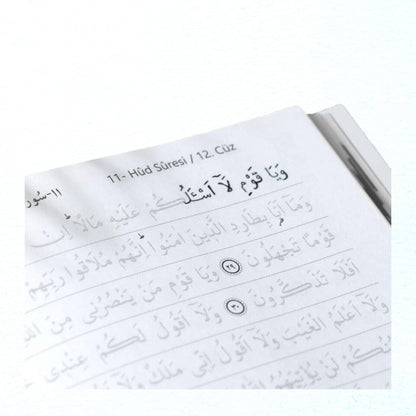 11- Hûd Sûresi / 12. Cüz
١١-سُور
وَيَا قَوْمِ لَآ اَسْـَٔلُكُمْ عَلَيْهِ مَالًاۜ اِنْ
وَمَٓا اَنَا۬ بِطَارِدِ الَّذ۪ينَ اٰمَنُواۜ اِنَّهُمْ مُلَاقُوا رَبِّهِمْ
قَوْمًا تَجْهَلُونَ ٢٩ وَيَا قَوْمِ مَنْ يَنْصُرُن۪ي مِنَ
اَفَلَا تَذَكَّرُونَ ٣٠ وَلَٓا اَقُولُ لَكُمْ عِنْد۪ي
وَلَٓا اَعْلَمُ الْغَيْبَ وَلَٓا اَقُولُ اِنّ۪ي مَلَكٌ وَلَٓا
لَنْ يُؤْتِيَهُمُ